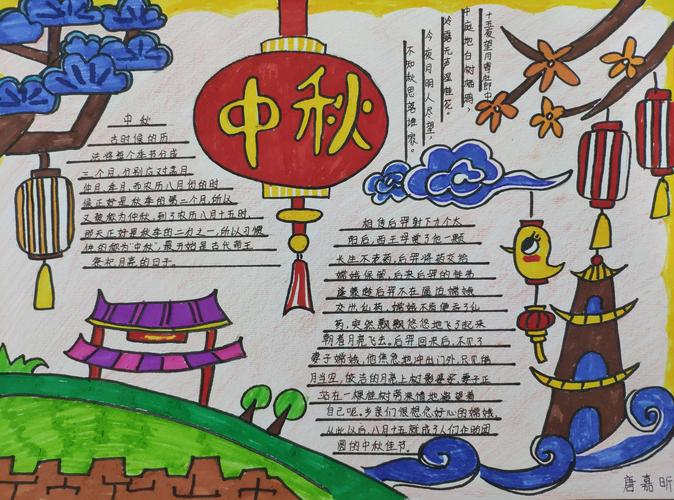 中秋
中秋
古时候的历
法将每个季节分成
三个月,分别应对孟月
仲月,季月,而农历八月初的时
候正好是秋季的第二个月,所以
又被称为仲秋,到了农历八月十五时,
那天正好是秋季的二分之一,所以习惯
性的称为“中秋”,最开始是古代帝王
祭祀月亮的日子。
十五夜望月寄杜郎中
中庭地白树栖鸦,
冷露无声湿桂花。
今夜月明人尽望,
不知秋思落谁家。
相传后羿射下九个太
阳后,西王母奖了他一颗
长生不老药,后羿将药交给
嫦娥保管,后来后羿的徒弟
逢蒙趁后羿不在逼迫嫦娥
交出仙药,嫦娥不得便吞了仙
药,突然飘飘悠悠地飞了起来
朝着月亮飞去。后羿回来后,不见了
妻子嫦娥,他焦急地冲出门外,只见皓
月当空,皎洁的月亮上树影婆娑,妻子正
站在一棵桂树旁深情地凝望着
自己呢。乡亲们很想念好心的嫦娥,
从此以后,八月十五就成了人们企盼团
圆的中秋佳节。
唐嘉昕